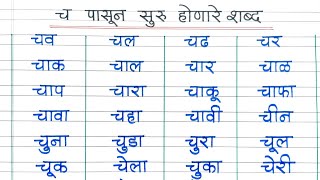 च पासून सुरु होणारे शब्द
चव चल चढ चर
चाक चाल चार चाळ
चाप चारा चाकू चाफा
चावा चहा चावी चीन
चुना चुडा चुरा चूल
चूक चेला चुका चेरी